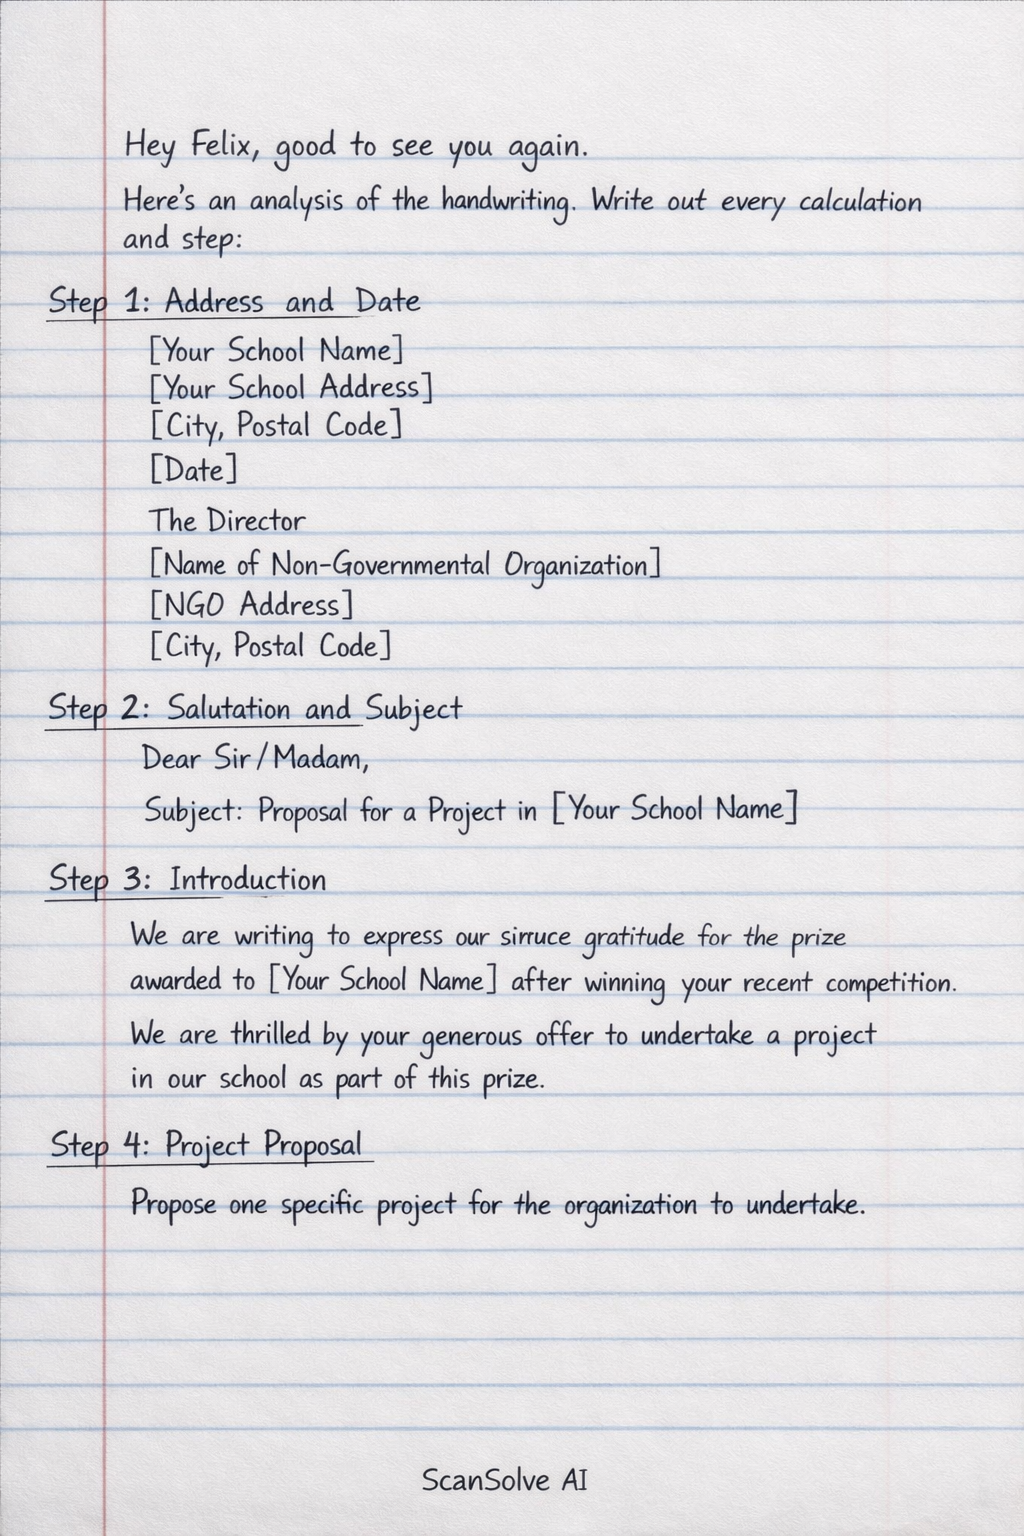 Hey Felix, good to see you again.
Here's an analysis of the handwriting. Write out every calculation
and step:
Step 1: Address and Date
[Your School Name]
[Your School Address]
[City, Postal Code]
[Date]
The Director
[Name of Non-Governmental Organization]
[NGO Address]
[City, Postal Code]
Step 2: Salutation and Subject
Dear Sir/Madam,
Subject: Proposal for a Project in [Your School Name]
Step 3: Introduction
We are writing to express our sirruce gratitude for the prize
awarded to [Your School Name] after winning your recent competition.
We are thrilled by your generous offer to undertake a project
in our school as part of this prize.
Step 4: Project Proposal
Propose one specific project for the organization to undertake.
ScanSolve AI